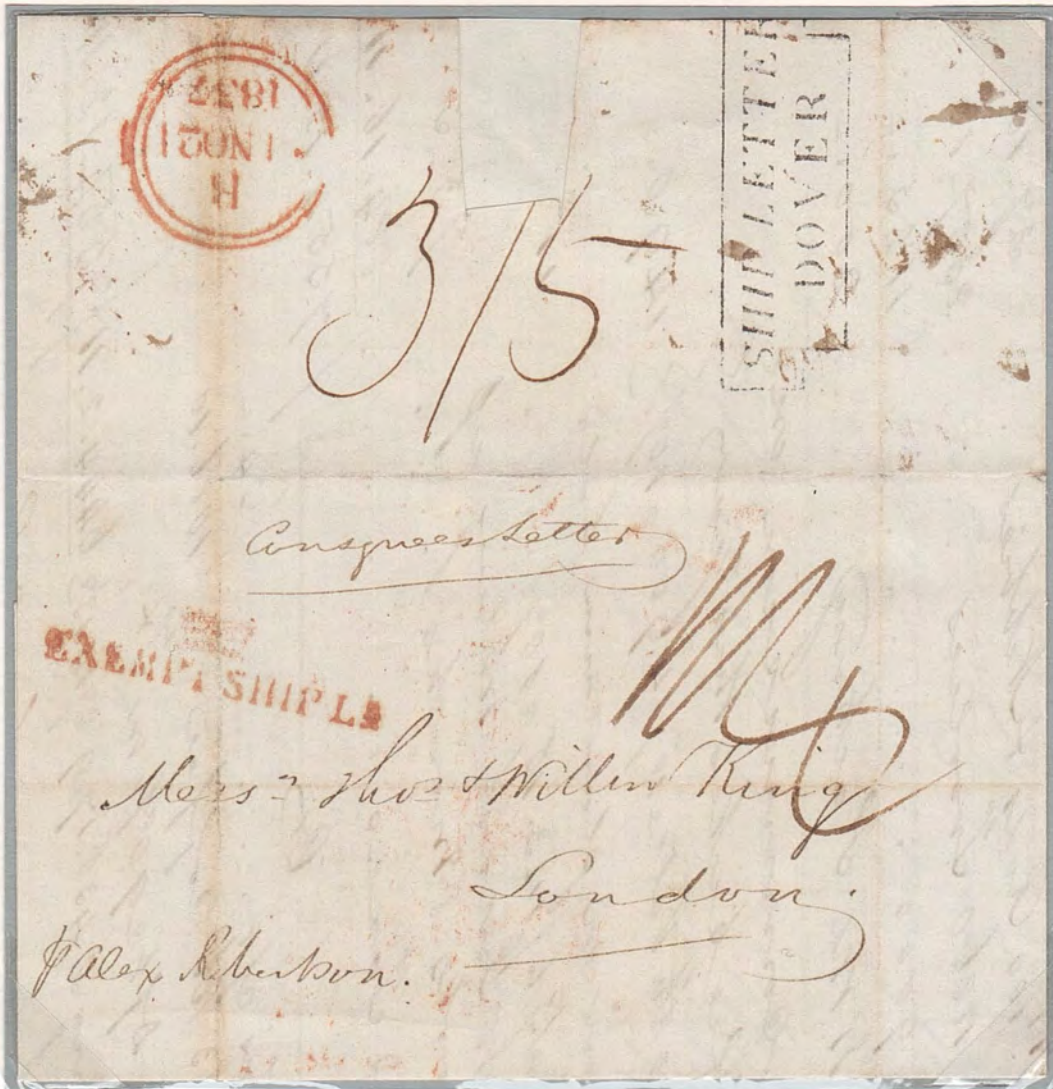 H
1 NO 21
1837
SHIP LETTER
DOVER
3/5
Consignees Letter
EXEMPT SHIP LR
Messrs Thos & Willm King
London.
p Alex Robertson.